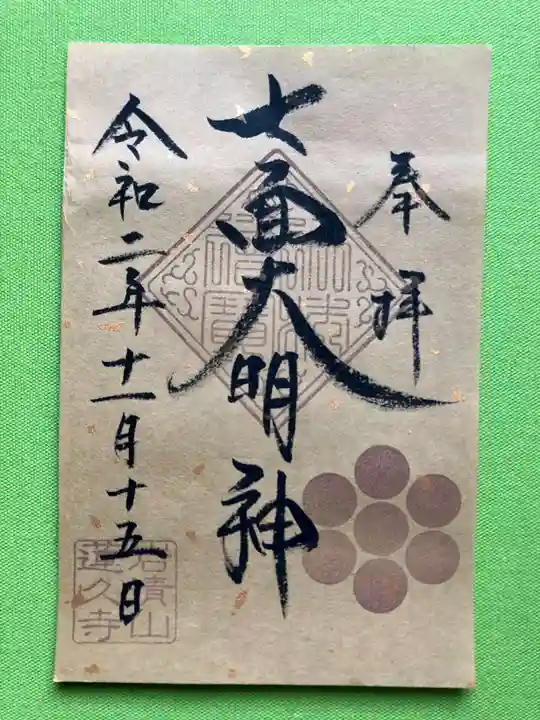 奉拝
七面大明神
令和二年十一月十五日
岩清山
蓮久寺